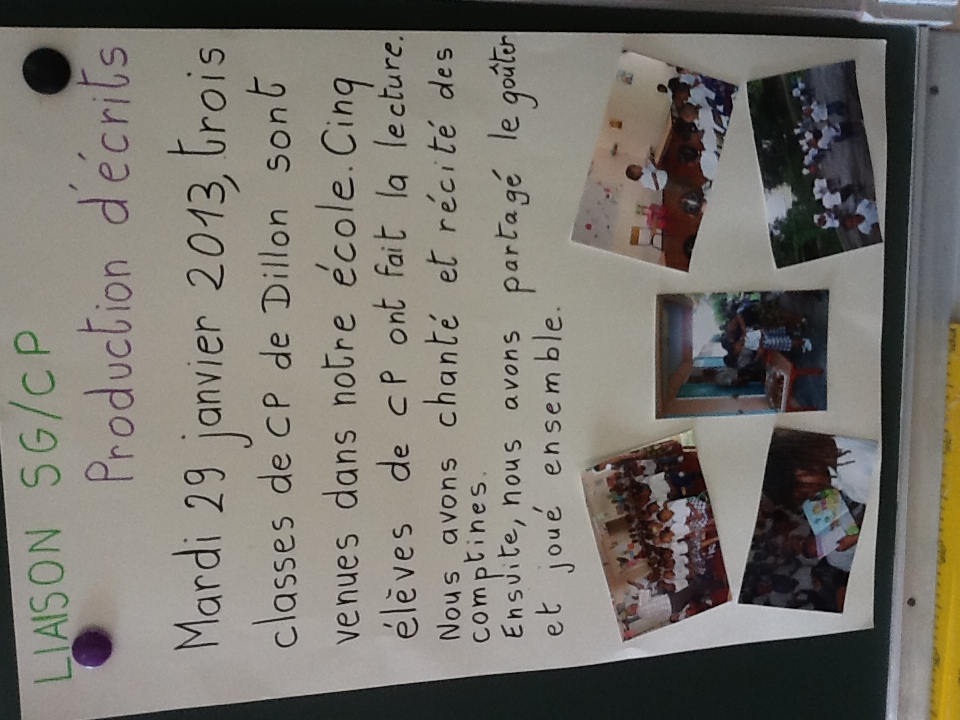 LIAISON SG/CP
Production d'écrits
Mardi 29 janvier 2013, trois
classes de CP de Dillon sont
venues dans notre école. Cinq
élèves de CP ont fait la lecture.
Nous avons chanté et récité des
comptines.
Ensuite, nous avons partagé le goûter
et joué ensemble.